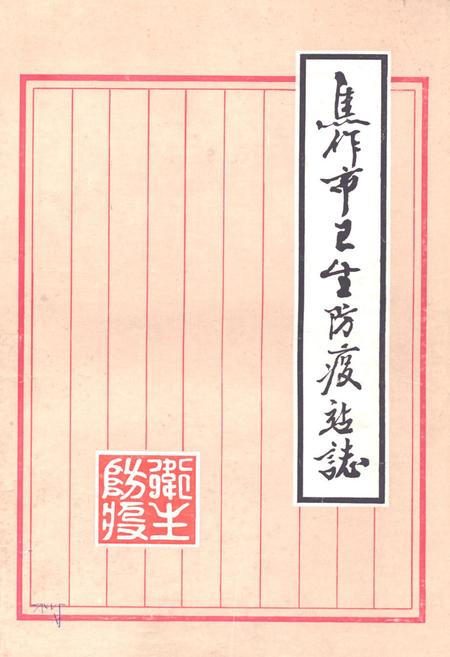 焦作市卫生防疫站誌
衛生
防疫